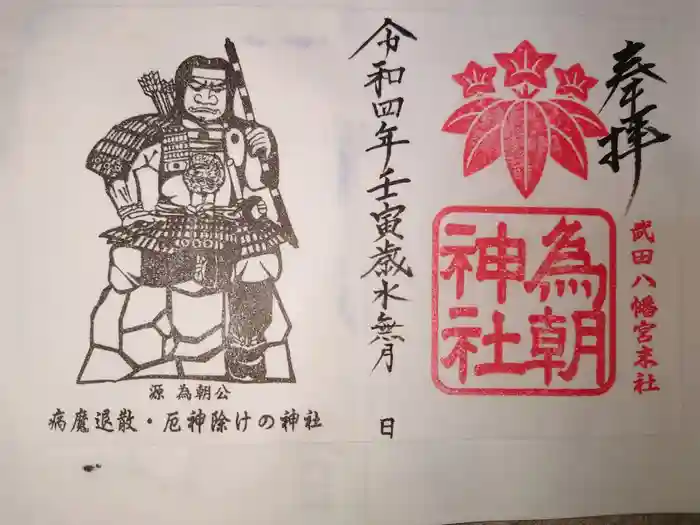 奉拝
武田八幡宮末社
為朝
神社
令和四年壬寅歳水無月　日
源 為朝公
病魔退散・厄神除けの神社